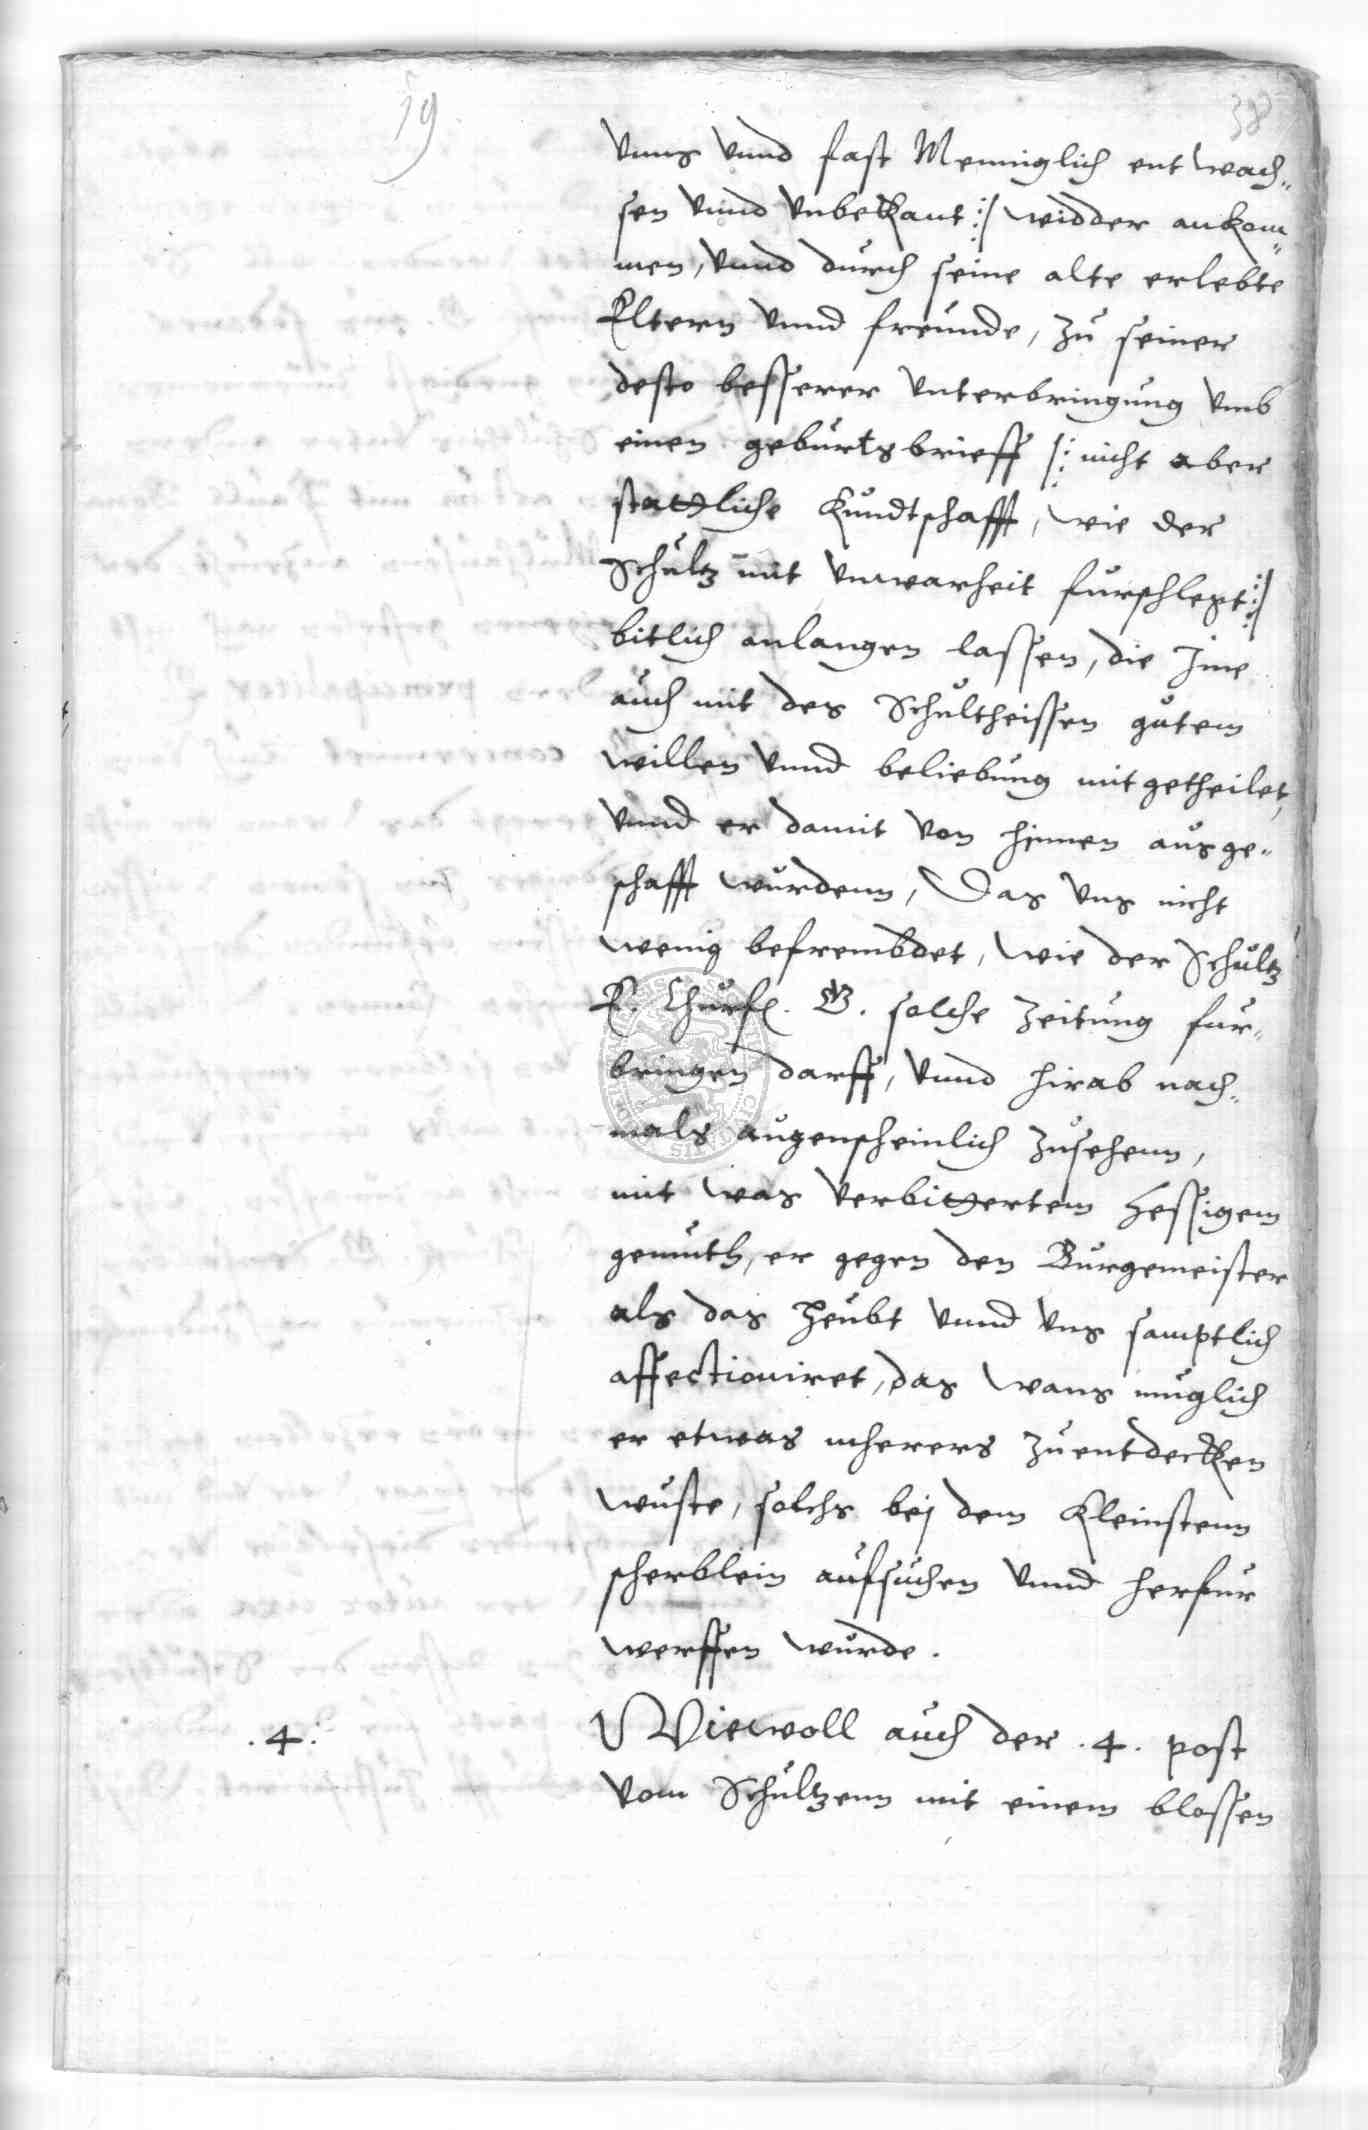 19
38
Vnns Vnnd fast Menniglich entwach„
sen Vnnd Vnbekant :/ widder ankom„
men, Vnnd durch seine alte erlebte
Eltern Vnnd freunde, zu seiner
desto besserer Vnterbringung Vmb
einen geburtsbrieff /: nicht aber
stattliche Kundtschafft, wie der
Schultz mit Vnwarheit furschlegt :/
bitlich anlangen lassen, die Ime
auch mit des Schultheissen gutem
willen Vnnd beliebung mitgetheilet,
Vnnd er damit Von hinnen ausge„
schafft wurdenn, Das Vns nicht
wenig befrembdet, wie der Schultz
E. Churf. G. solche Zeitung fur„
bringen darff, Vnnd hirab nach„
mals augenscheinlich Zusehenn,
mit was Verbittertem hessigem
gemuth, er gegen den Burgemeister
als das Heubt Vnnd Vns samptlich
affectioniret, das wans muglich
er etwas mherers Zuentdecken
wuste, solchs bej dem Kleinstenn
scherblein aufsuchen Vnnd herfur
werffen wurde.
.4.
Wiewoll auch der .4. post
Vom Schultzenn mit einem blossen